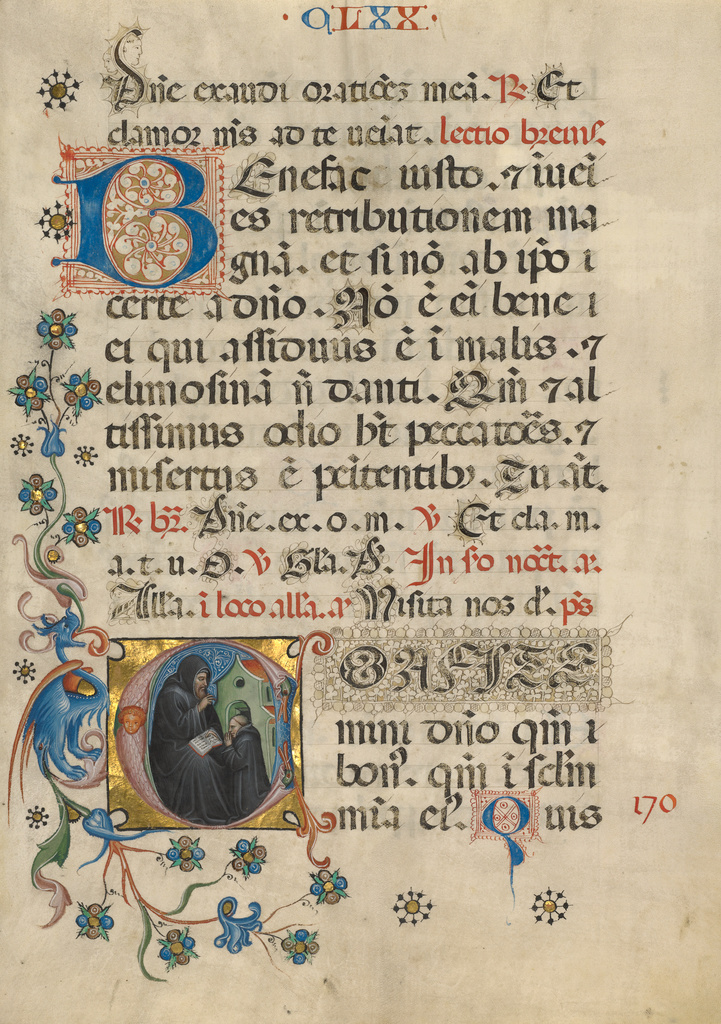 · CLXX ·
Dñe exaudi oratioēz meā. R. Et
clamor m̃s ad te ueiat. lectio breuis.
BEnefac iusto. ⁊ iuei
es retributionem ma
gnā. et si nō ab ip̃o i
certe a dño. Nō ē ei bene i
ei qui assiduus ē ī malis. ⁊
elimosinā ñ danti. Qm̃ ⁊ al
tissimus odio h̃t peccatoēs. ⁊
misertus ē peitentibꝫ. Tu aūt.
R. br̃. Dñe. ex. o. m. V Et cla. m.
a. t. u. D. V Gl̃a. P̃. In ſo noct̃. a.
All̃a. ī loco all̃a. a Misitā noz d̃. ps̃
COnFITE
mini dño qm̃ i
bonꝰ. qm̃ ī sclm̃
mīa eiꝰ. Quis
170